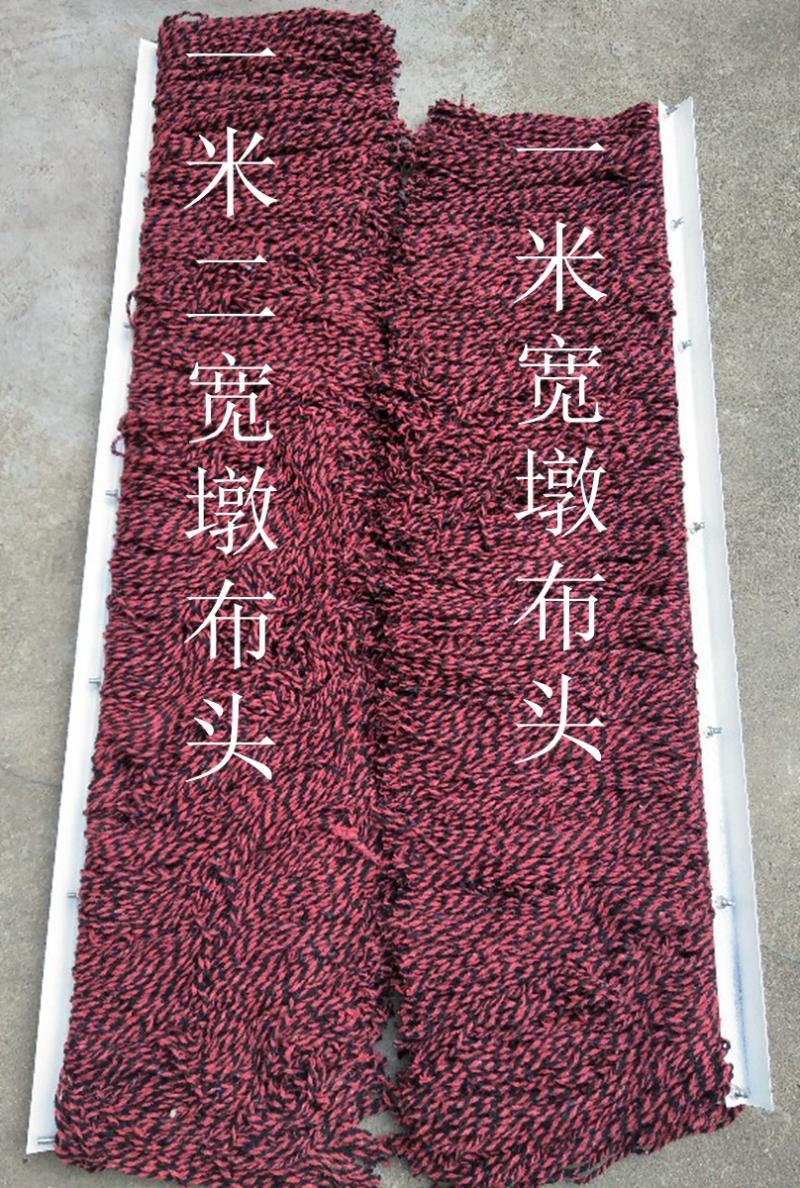 一米二宽墩布头
一米宽墩布头